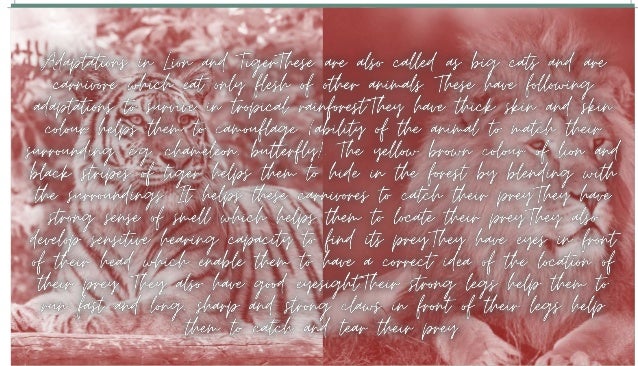 Adaptations in Lion and TigerThese are also called as big cats and are
carnivore which eat only flesh of other animals These have following
adaptations to survive in tropical rainforestThey have thick skin and skin
colour helps them to camouflage (ability of the animal to match their
surrounding e.g chameleon butterfly) The yellow brown colour of lion and
black stripes of tiger helps them to hide in the forest by blending with
the surroundings It helps these carnivores to catch their preyThey have
strong sense of smell which helps them to locate their preyThey also
develop sensitive hearing capacity to find its preyThey have eyes in front
of their head which enable them to have a correct idea of the location of
their prey They also have good eyesightTheir strong legs help them to
run fast and long, sharp and strong claws in front of their legs help
them to catch and tear their prey